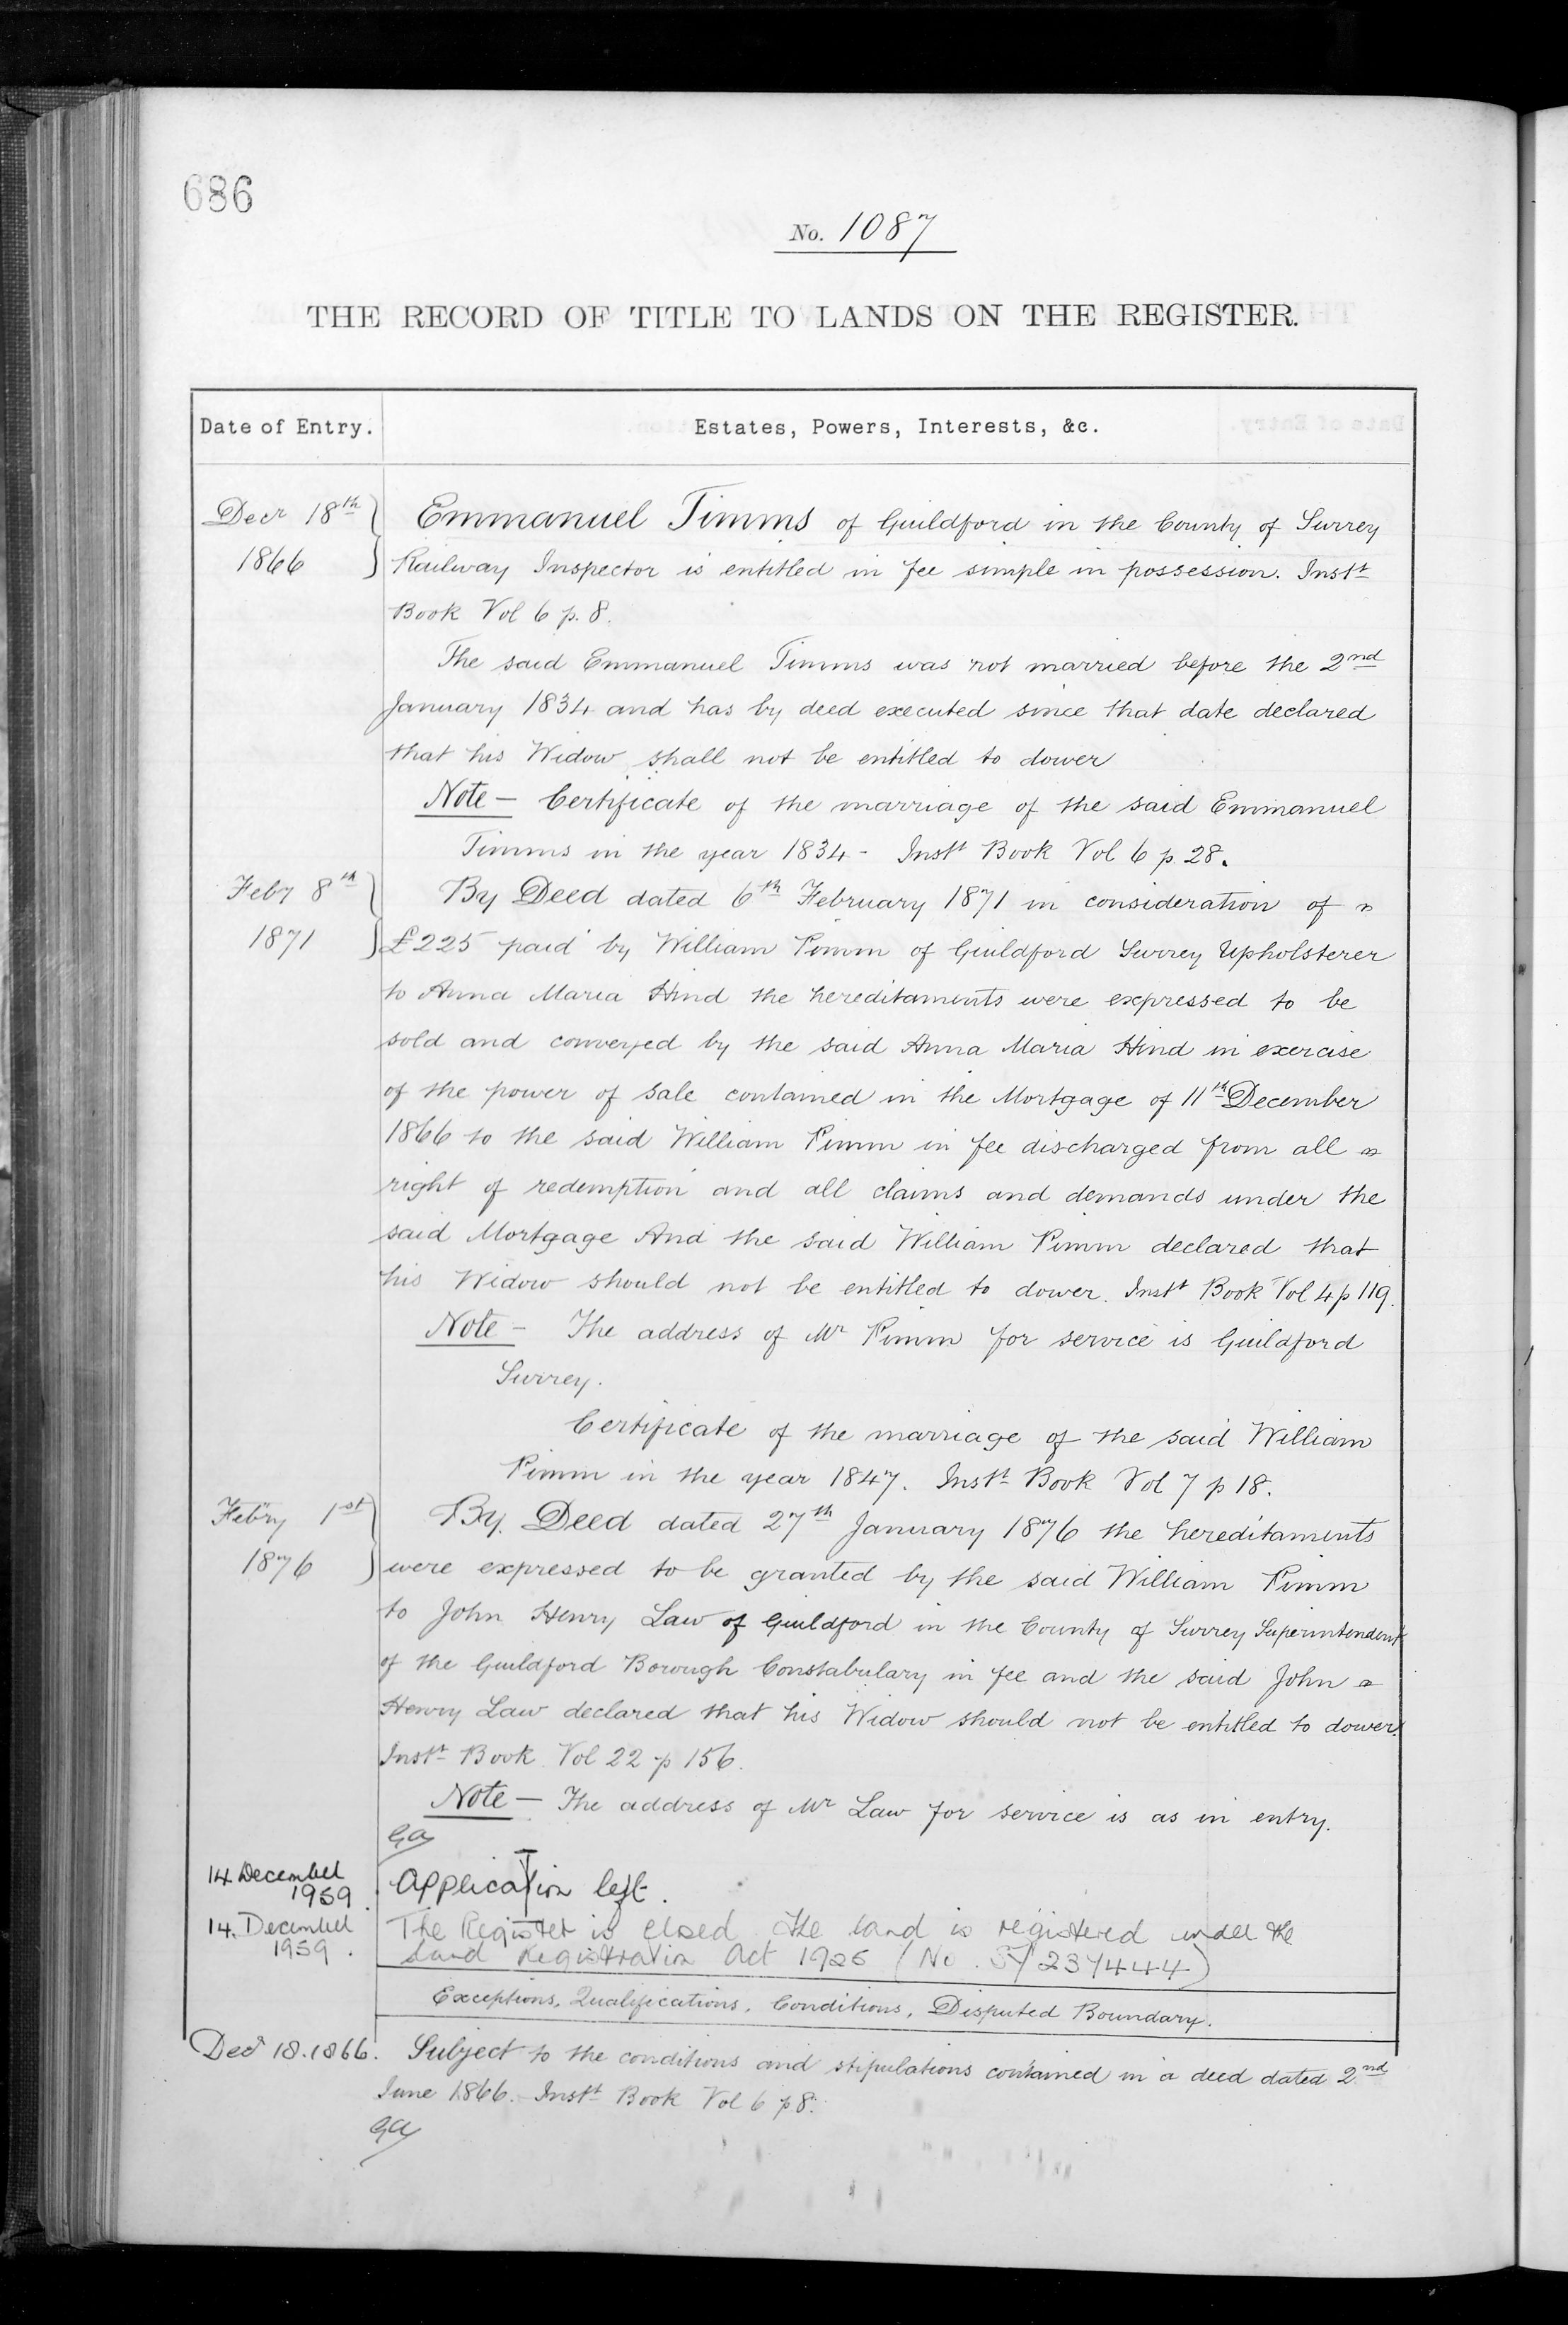 686
No. 1087
THE RECORD OF TITLE TO LANDS ON THE REGISTER.
Date of Entry. Estates, Powers, Interests, &c.
Decr 18th Emmanuel Timms of Guildford in the County of Surrey
1866 Railway Inspector is entitled in fee simple in possession. Instt
Book Vol 6 p. 8.
The said Emmanuel Timms was not married before the 2nd
January 1834 and has by deed executed since that date declared
that his Widow shall not be entitled to dower
Note — Certificate of the marriage of the said Emmanuel
Timms in the year 1834 - Instt Book Vol 6 p. 28.
Feby 8th By Deed dated 6th February 1871 in consideration of
1871 £225 paid by William Pimm of Guildford Surrey Upholsterer
to Anna Maria Hind the hereditaments were expressed to be
sold and conveyed by the said Anna Maria Hind in exercise
of the power of sale contained in the Mortgage of 11th December
1866 to the said William Pimm in fee discharged from all
right of redemption and all claims and demands under the
said Mortgage And the said William Pimm declared that
his Widow should not be entitled to dower. Instt Book Vol 4 p 119.
Note - The address of Mr Pimm for service is Guildford
Surrey.
Certificate of the marriage of the said William
Pimm in the year 1847. Instt Book Vol 7 p 18.
Febry 1st By Deed dated 27th January 1876 the hereditaments
1876 were expressed to be granted by the said William Pimm
to John Henry Law of Guildford in the County of Surrey Superintendent
of the Guildford Borough Constabulary in fee and the said John
Henry Law declared that his Widow should not be entitled to dower.
Instt Book Vol 22 p 156.
Note — The address of Mr Law for service is as in entry.
14 December 1959. Application left.
14. December 1959. The Register is closed the land is registered under the
Land Registration Act 1925 (No. SY 237444)
Exceptions, Qualifications, Conditions, Disputed Boundary.
Decr 18. 1866. Subject to the conditions and stipulations contained in a deed dated 2nd
June 1866. Instt Book Vol 6 p 8.